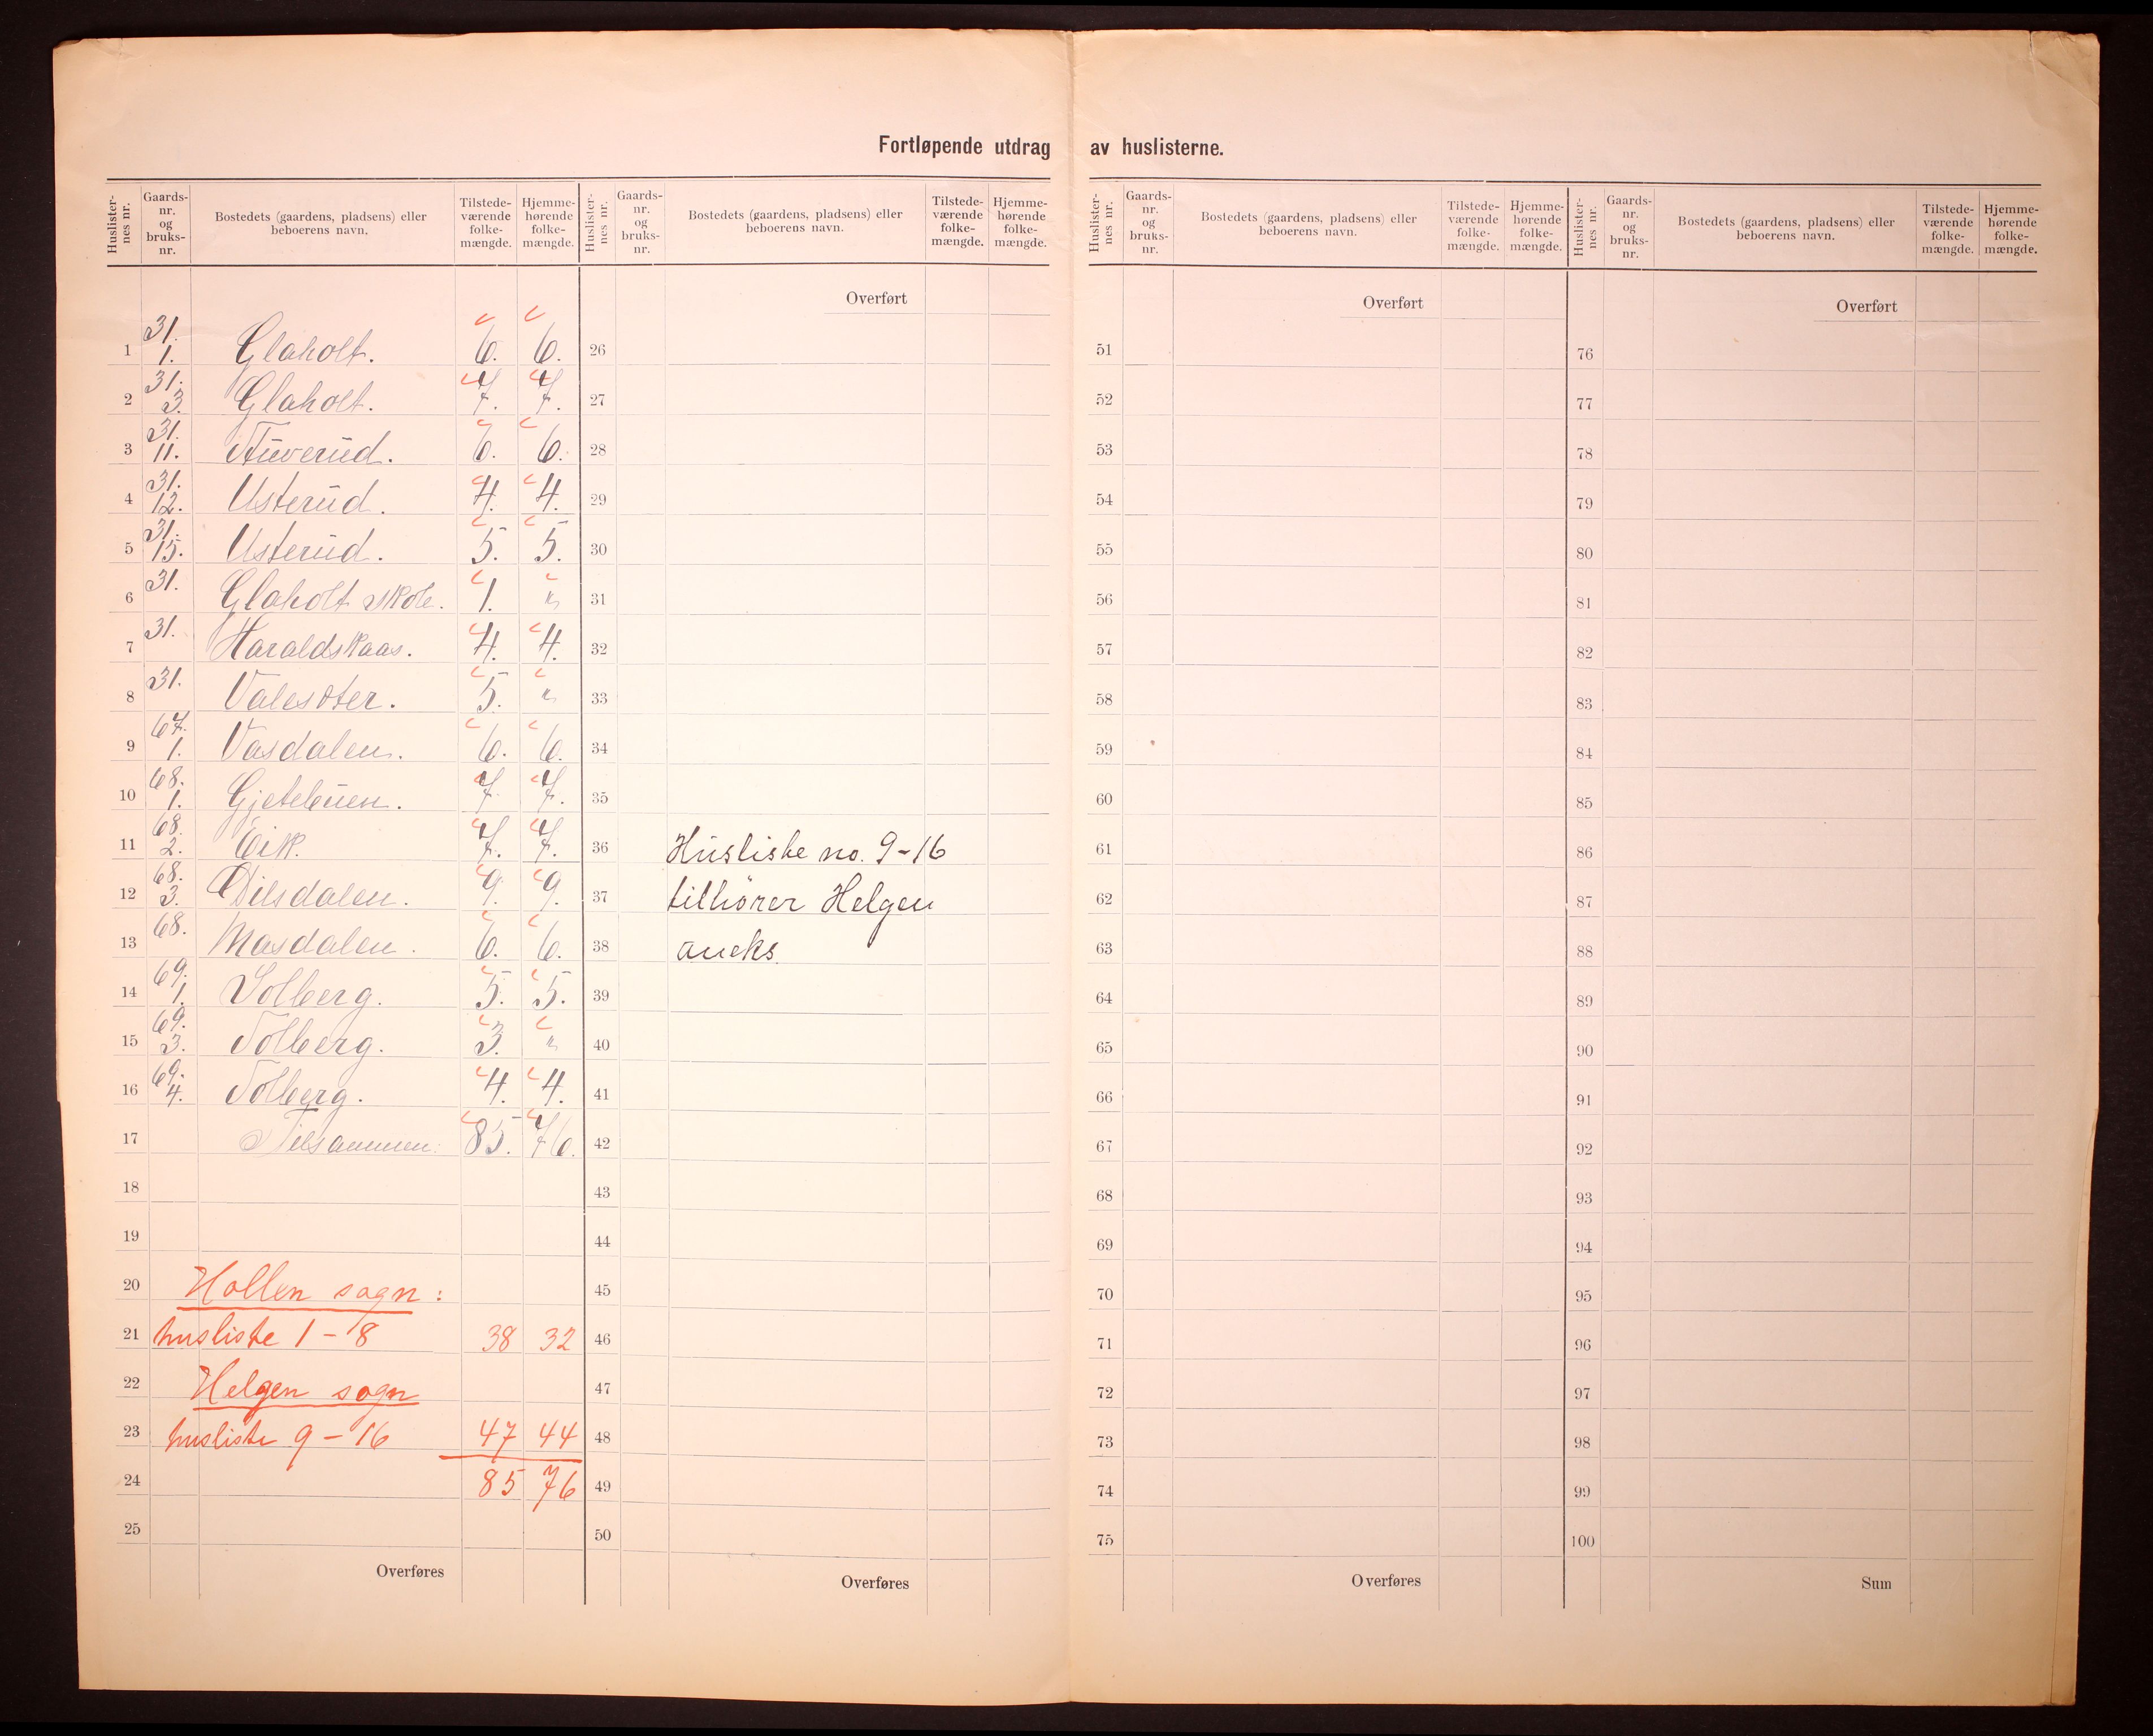 Fortløpende utdrag av huslisterne.
Huslister-nes nr. Gaards-nr. og bruks-nr. Bostedets (gaardens, pladsens) eller beboerens navn. Tilstede-værende folke-mængde. Hjemme-hørende folke-mængde.
Huslister-nes nr. Gaards-nr. og bruks-nr. Bostedets (gaardens, pladsens) eller beboerens navn. Tilstede-værende folke-mængde. Hjemme-hørende folke-mængde.
Huslister-nes nr. Gaards-nr. og bruks-nr. Bostedets (gaardens, pladsens) eller beboerens navn. Tilstede-værende folke-mængde. Hjemme-hørende folke-mængde.
Huslister-nes nr. Gaards-nr. og bruks-nr. Bostedets (gaardens, pladsens) eller beboerens navn. Tilstede-værende folke-mængde. Hjemme-hørende folke-mængde.
Overført Overført Overført
1 31. 1. Glaholt. 6. 6. 26 51 76
2 31. 3. Glaholt. 7. 7. 27 52 77
3 31. 11. 6. 6. 28 53 78
4 31. 12. Usterud. 4. 4. 29 54 79
5 31. 15. Usterud. 5. 5. 30 55 80
6 31. Glaholt skole. 1. " 31 56 81
7 31. Haraldskaas. 4. 4. 32 57 82
8 31. Valesöter. 5. " 33 58 83
9 67. 1. Vasdalen. 6. 6. 34 59 84
10 68. 1. Gjetebuen. 7. 7. 35 60 85
11 68. 2. Eik. 7. 7. 36 Husliste no. 9-16 61 86
12 68. 3. Dilsdalen. 9. 9. 37 tilhörer Helgen 62 87
13 68. Masdalen. 6. 6. 38 aneks 63 88
14 69. 1. Solberg. 5. 5. 39 64 89
15 69. 3. Solberg. 3. " 40 65 90
16 69. 4. Solberg. 4. 4. 41 66 91
17 Tilsammen: 85. 76. 42 67 92
18 43 68 93
19 44 69 94
20 Hollen sogn: 45 70 95
21 husliste 1-8 38 32 46 71 96
22 Helgen sogn 47 72 97
23 husliste 9-16 47 44 48 73 98
24 85 76 49 74 99
25 50 75 100
Overføres Overføres Overføres Sum